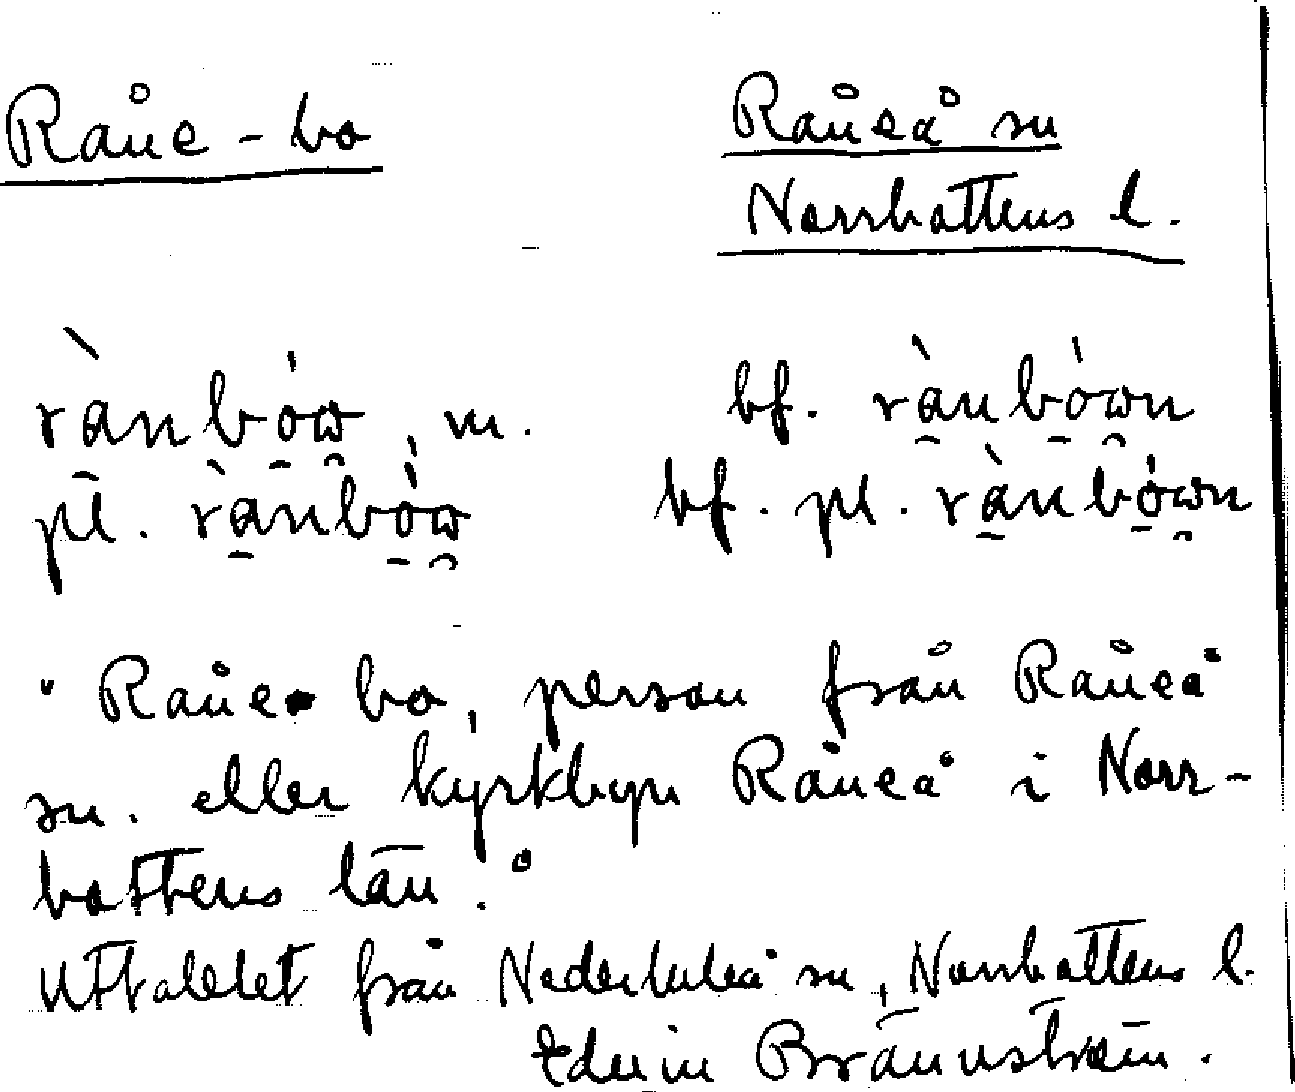 Råne-bo
Råneå sn
Norrbottens l.
rànbów, m.
bf. rànbówn
pl. rànbów
bf. pl. rànbówn
"Råne-bo, person från Råneå
sn. eller kyrkbyn Råneå i Norr-
bottens län."
Uttalet från Nederluleå sn, Norrbottens l.
Edvin Brännström.